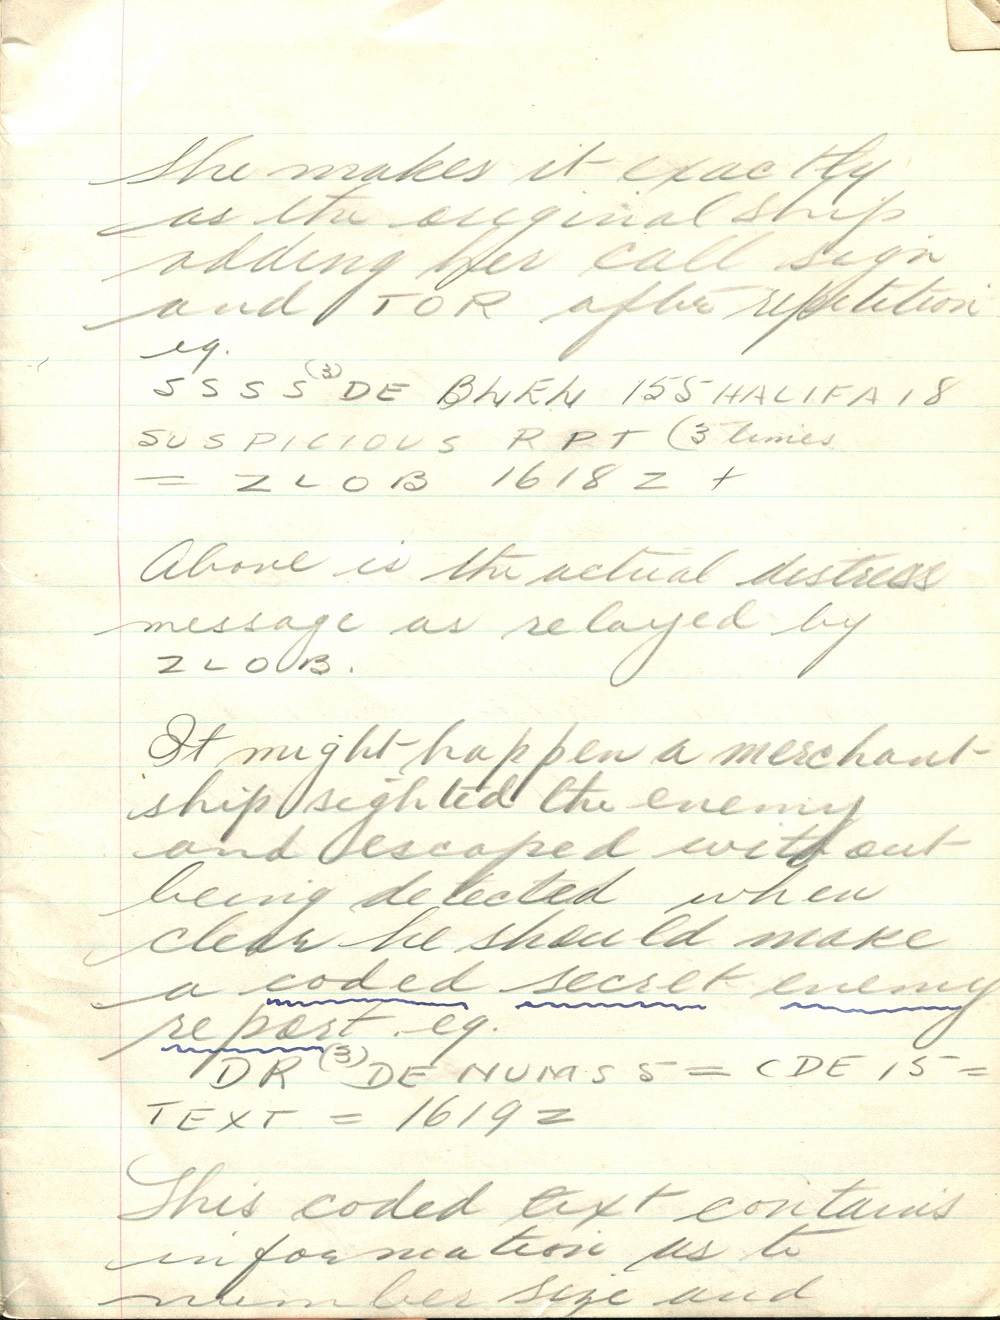 She makes it exactly
as the original ship
adding her call sign
and TOR after repetition
eg.
SSSS (3) DE 155 HALIFA 18
SUSPICIOUS RPT (3 times
= ZLOB 1618Z +
Above is the actual distress
message as relayed by
ZLOB.
It might happen a merchant
ship sighted the enemy
and escaped without
being detected when
clear he should make
a coded secret enemy
report. eg.
DR (3) DE NUMSS = CDE 15 =
TEXT = 1619Z
This coded text contains
information as to
number size and